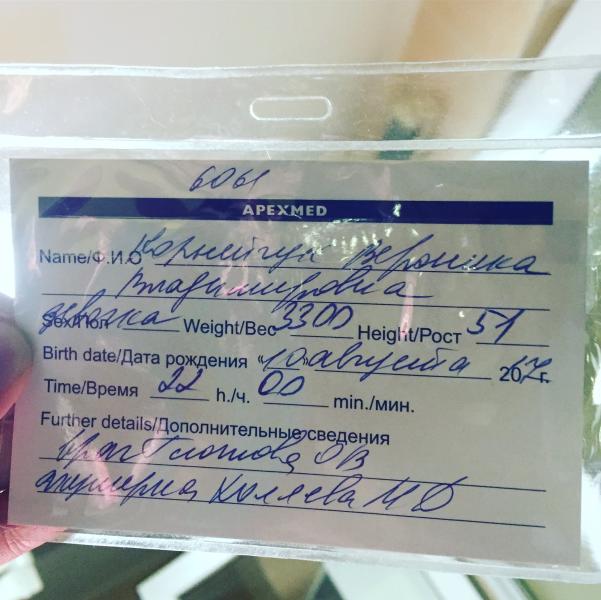 6061
APEXMED
Name/Ф.И.О Корнейчук Вероника
Владимировна
Sex/Пол девочка Weight/Вес 3300 Height/Рост 51
Birth date/Дата рождения «10» августа 2017г.
Time/Время 22 h./ч. 00 min./мин.
Further details/Дополнительные сведения
врач ОВ
акушерка МД